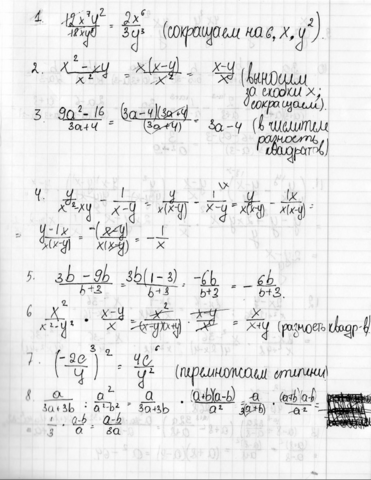 1. 12x⁷y²/18xy⁵ = 2x⁶/3y³ (сокращаем на 6, x, y²).
2. x²-xy/x² = x(x-y)/x² = x-y/x (выносим
за скобки x,
сокращаем).
3. 9a²-16/3a+4 = (3a-4)(3a+4)/(3a+4) = 3a-4 (в числителе
разность
квадратов)
4. y/x²-xy - 1/x-y = y/x(x-y) - 1\x/x-y = y/x(x-y) - 1x/x(x-y) =
= y-1x/x(x-y) = -(x-y)/x(x-y) = -1/x
5. 3b-9b/b+3 = 3b(1-3)/b+3 = -6b/b+3 = -6b/b+3.
6 x²/x²-y² · x-y/x = x²/(x-y)(x+y) · x-y/x = x/x+y (разность квадр-в)
7. (-2c³/y)² = 4c⁶/y² (перемножаем степени)
8 a/3a+3b : a²/a²-b² = a/3a+3b · (a+b)(a-b)/a² = a/3(a+b) · (a+b)(a-b)/a² =
= 1/3 · a-b/a = a-b/3a